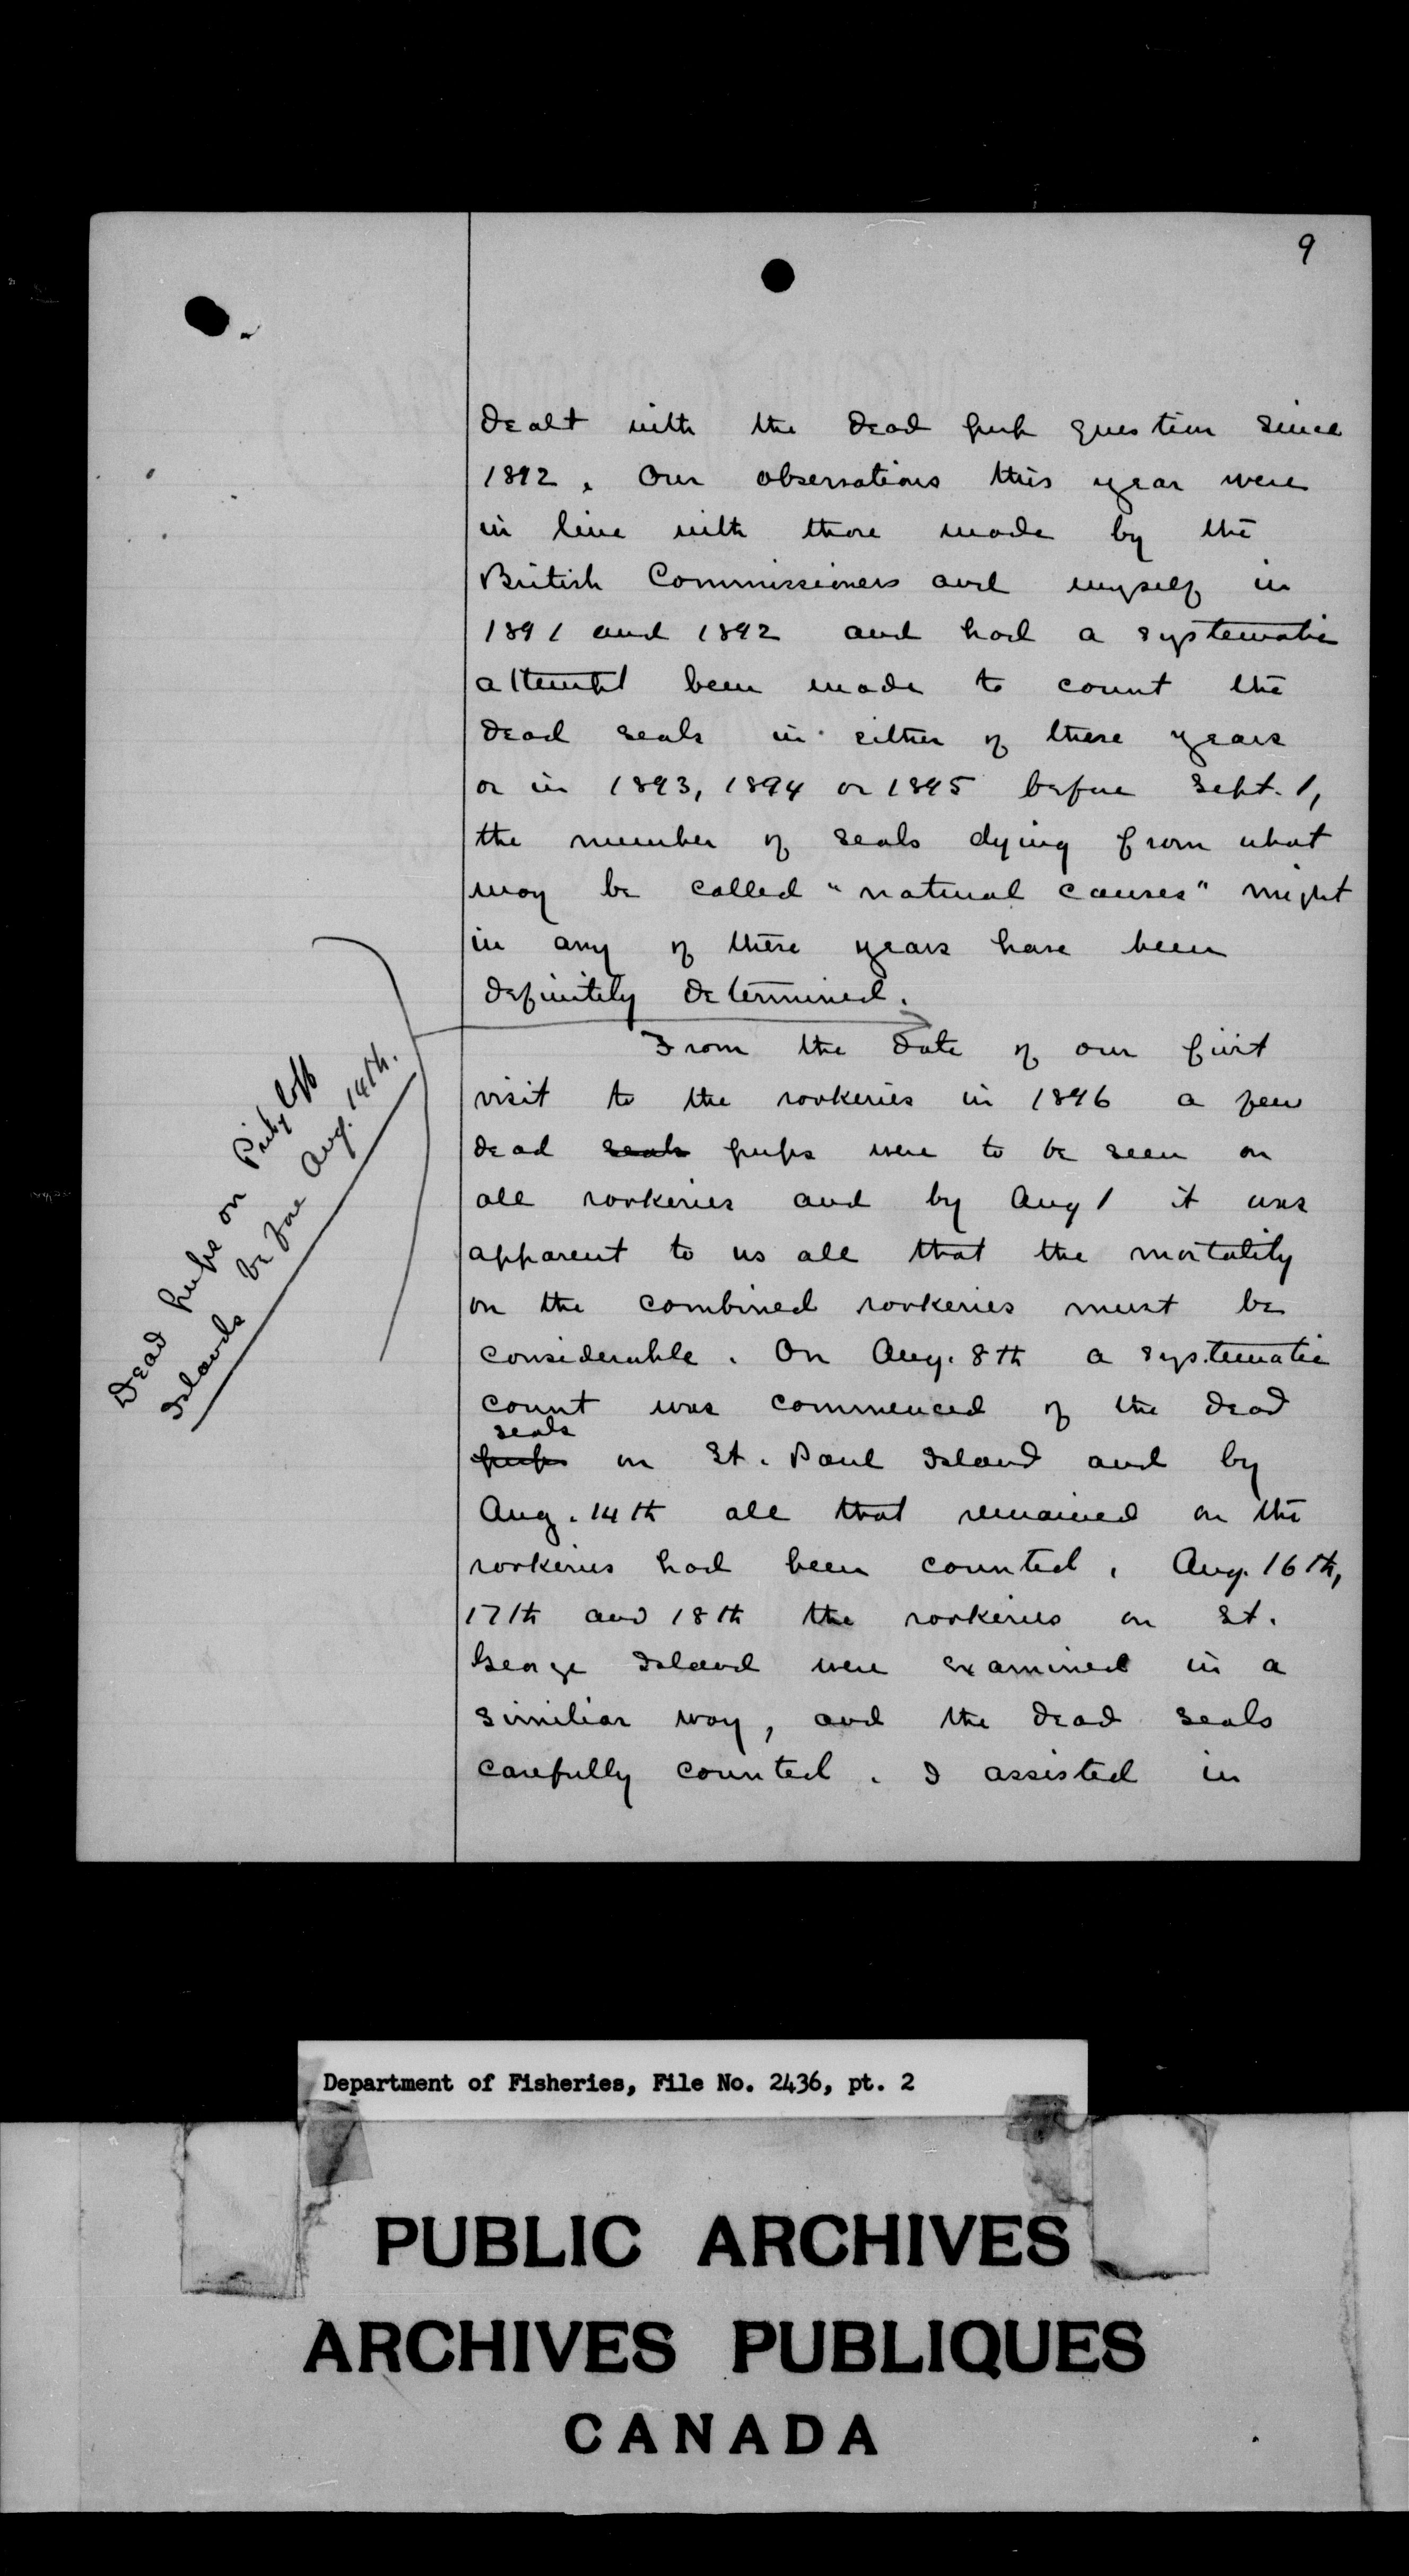 9
dealt with the dead pup question since
1892. Our observations this year were
in line with those made by the
British Commissioners and myself in
1891 and 1892 and had a systematic
attempt been made to count the
dead seals in either of these years
or in 1893, 1894 or 1895 before Sept. 1,
the number of seals dying from what
may be called "natural causes" might
in any of these years have been
definitely determined.
From the date of our first
visit to the rookeries in 1896 a few
dead seals pups were to be seen on
all rookeries and by Aug 1 it was
apparent to us all that the mortality
on the combined rookeries must be
considerable. On Aug. 8th a systematic
count was commenced of the dead
seals
pups on St. Paul Island and by
Aug. 14th all that remained on the
rookeries had been counted. Aug. 16th,
17th and 18th the rookeries on St.
George Island were examined in a
similiar way, and the dead seals
carefully counted. I assisted in
Dead pups on
Islands before Aug. 14th.
Department of Fisheries, File No. 2436, pt. 2
PUBLIC ARCHIVES
ARCHIVES PUBLIQUES
CANADA